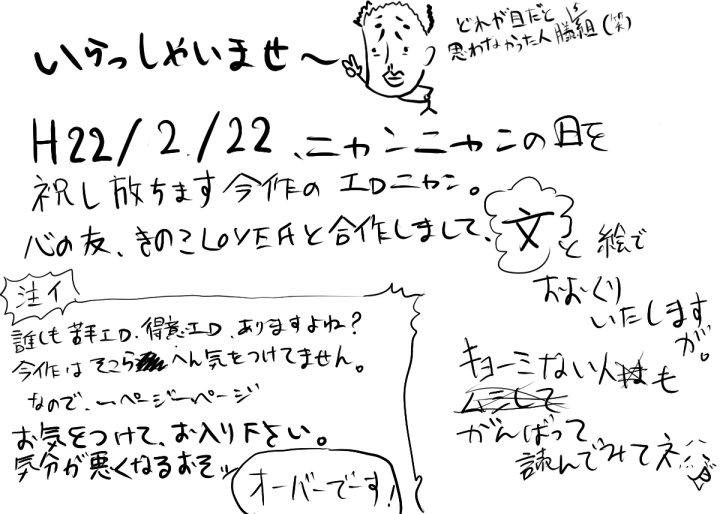 いらっしゃいませ～
どれが目だと
思わなかった人は勝組(笑)
H22/2/22、ニャンニャンの日を
祝し放ちます今作のエロニャン。
心の友、きのこLOVERと合作しまして、文と絵で
おおくり
いたします
が。
注イ
誰しも苦手エロ、得意エロ、ありますよね？
今作はそこらへん気をつけてません。
なので、一ページ一ページ
お気をつけて、お入り下さい。
気分が悪くなるおそッ
オーバーでーす！
キョーミない人も
がんばって
読んでみてネ